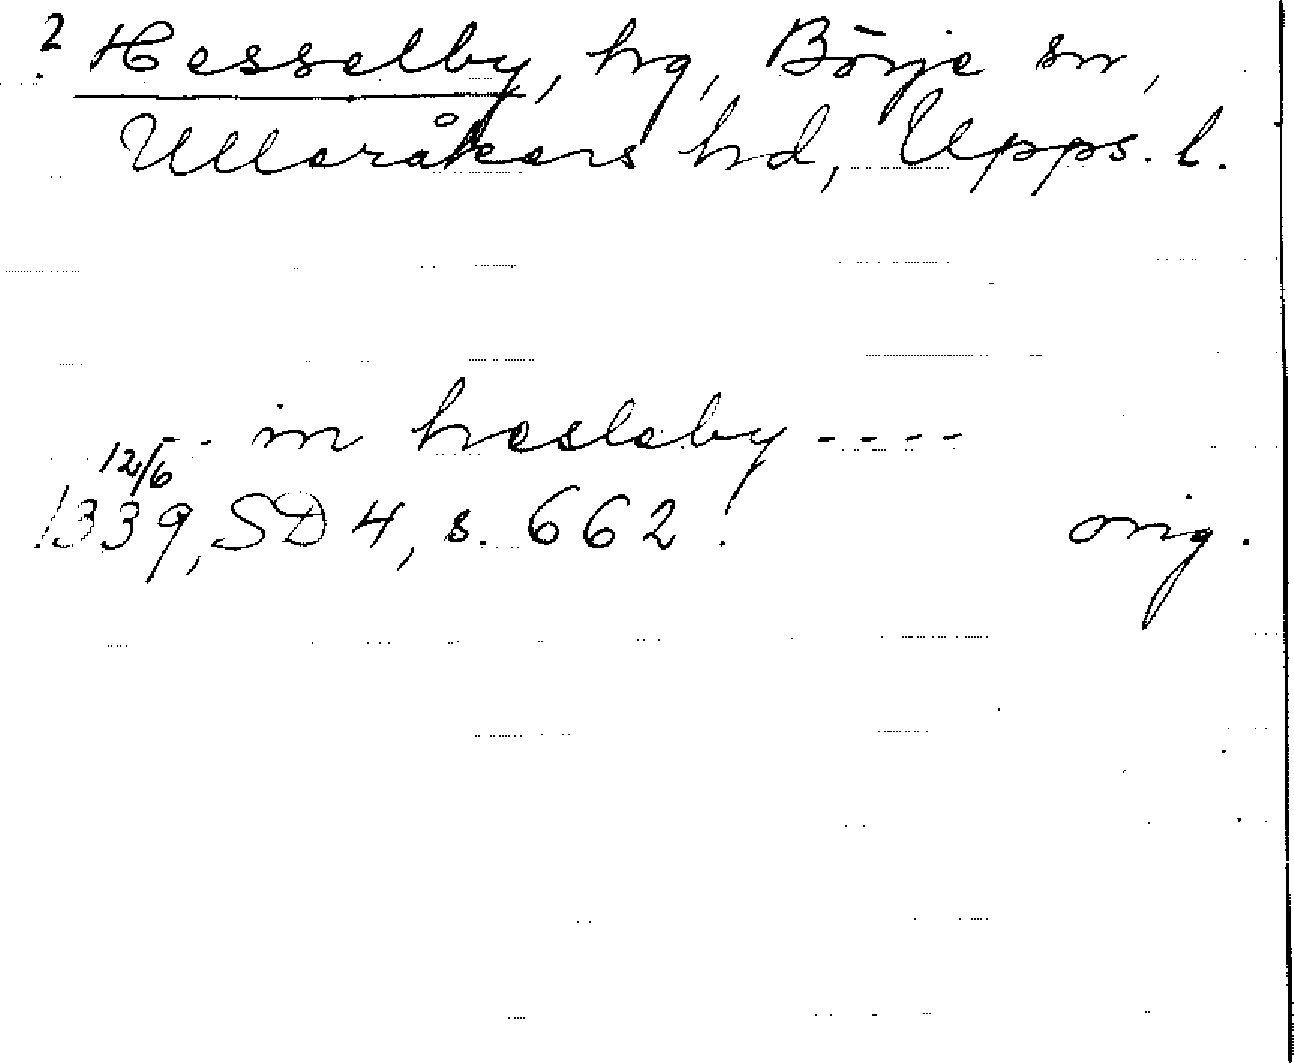 2 Hesselby, hg, Börje sn,
Ulleråkers hd, Upps. l.
- - in hesleby - - - -
12/6
1339, SD 4, s. 662. orig.